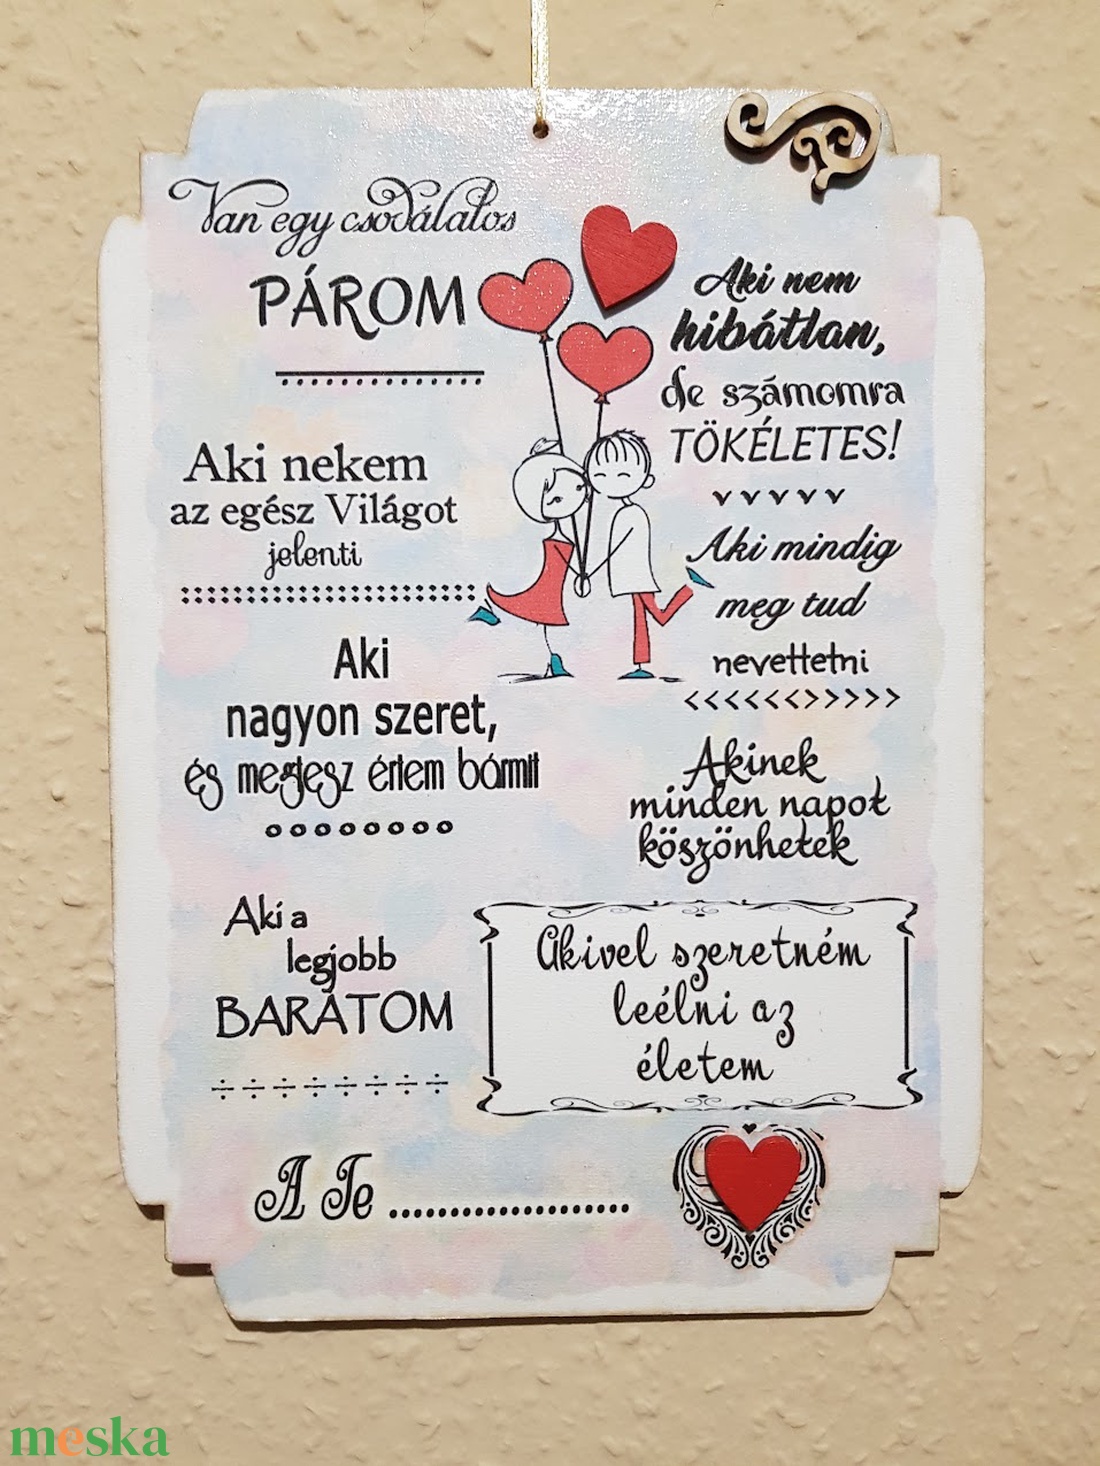 Van egy csodálatos
PÁROM
Aki nekem
az egész Világot
jelenti
Aki
nagyon szeret,
és megtesz értem bármit
Aki a
legjobb
BARÁTOM
Aki nem
hibátlan,
de számomra
TÖKÉLETES!
Aki mindig
meg tud
nevettetni
Akinek
minden napot
köszönhetek
Akivel szeretném
leélni az
életem
A Te ......................
meska